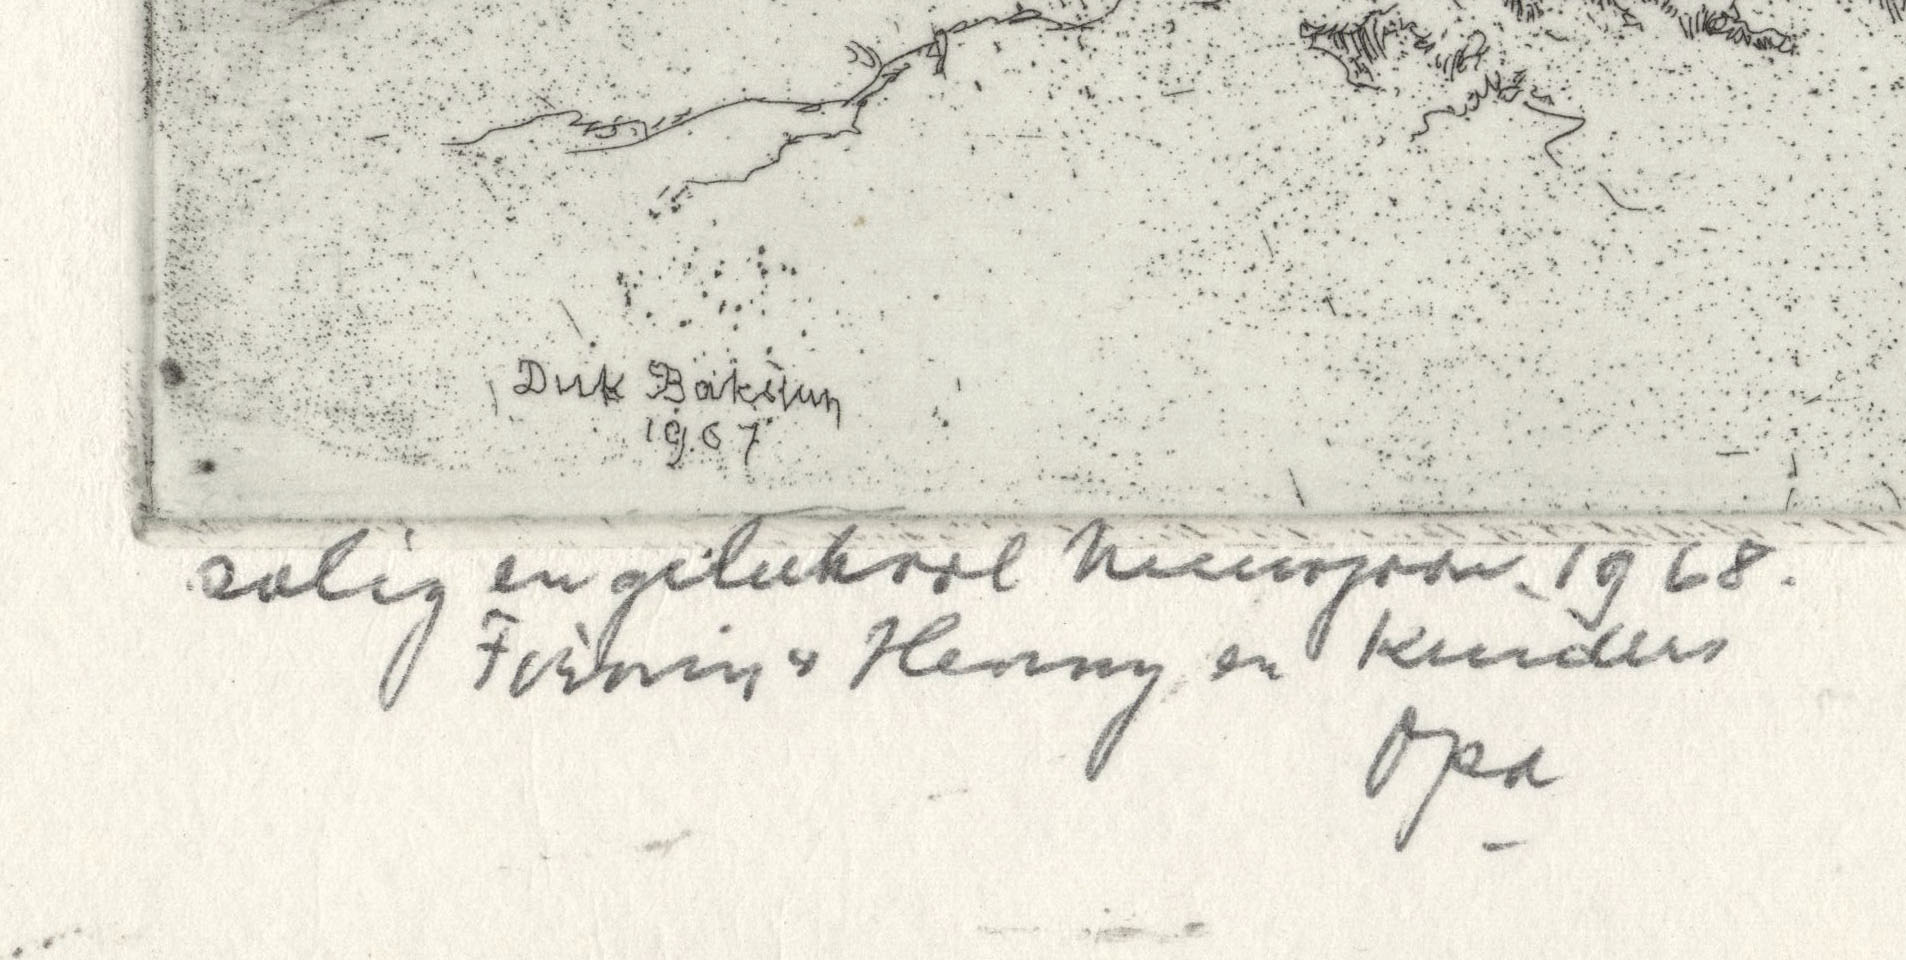 Dirk Baksteen
1967
zalig en gelukvol Nieuwjaar. 1968.
Henny en Kinders
Opa